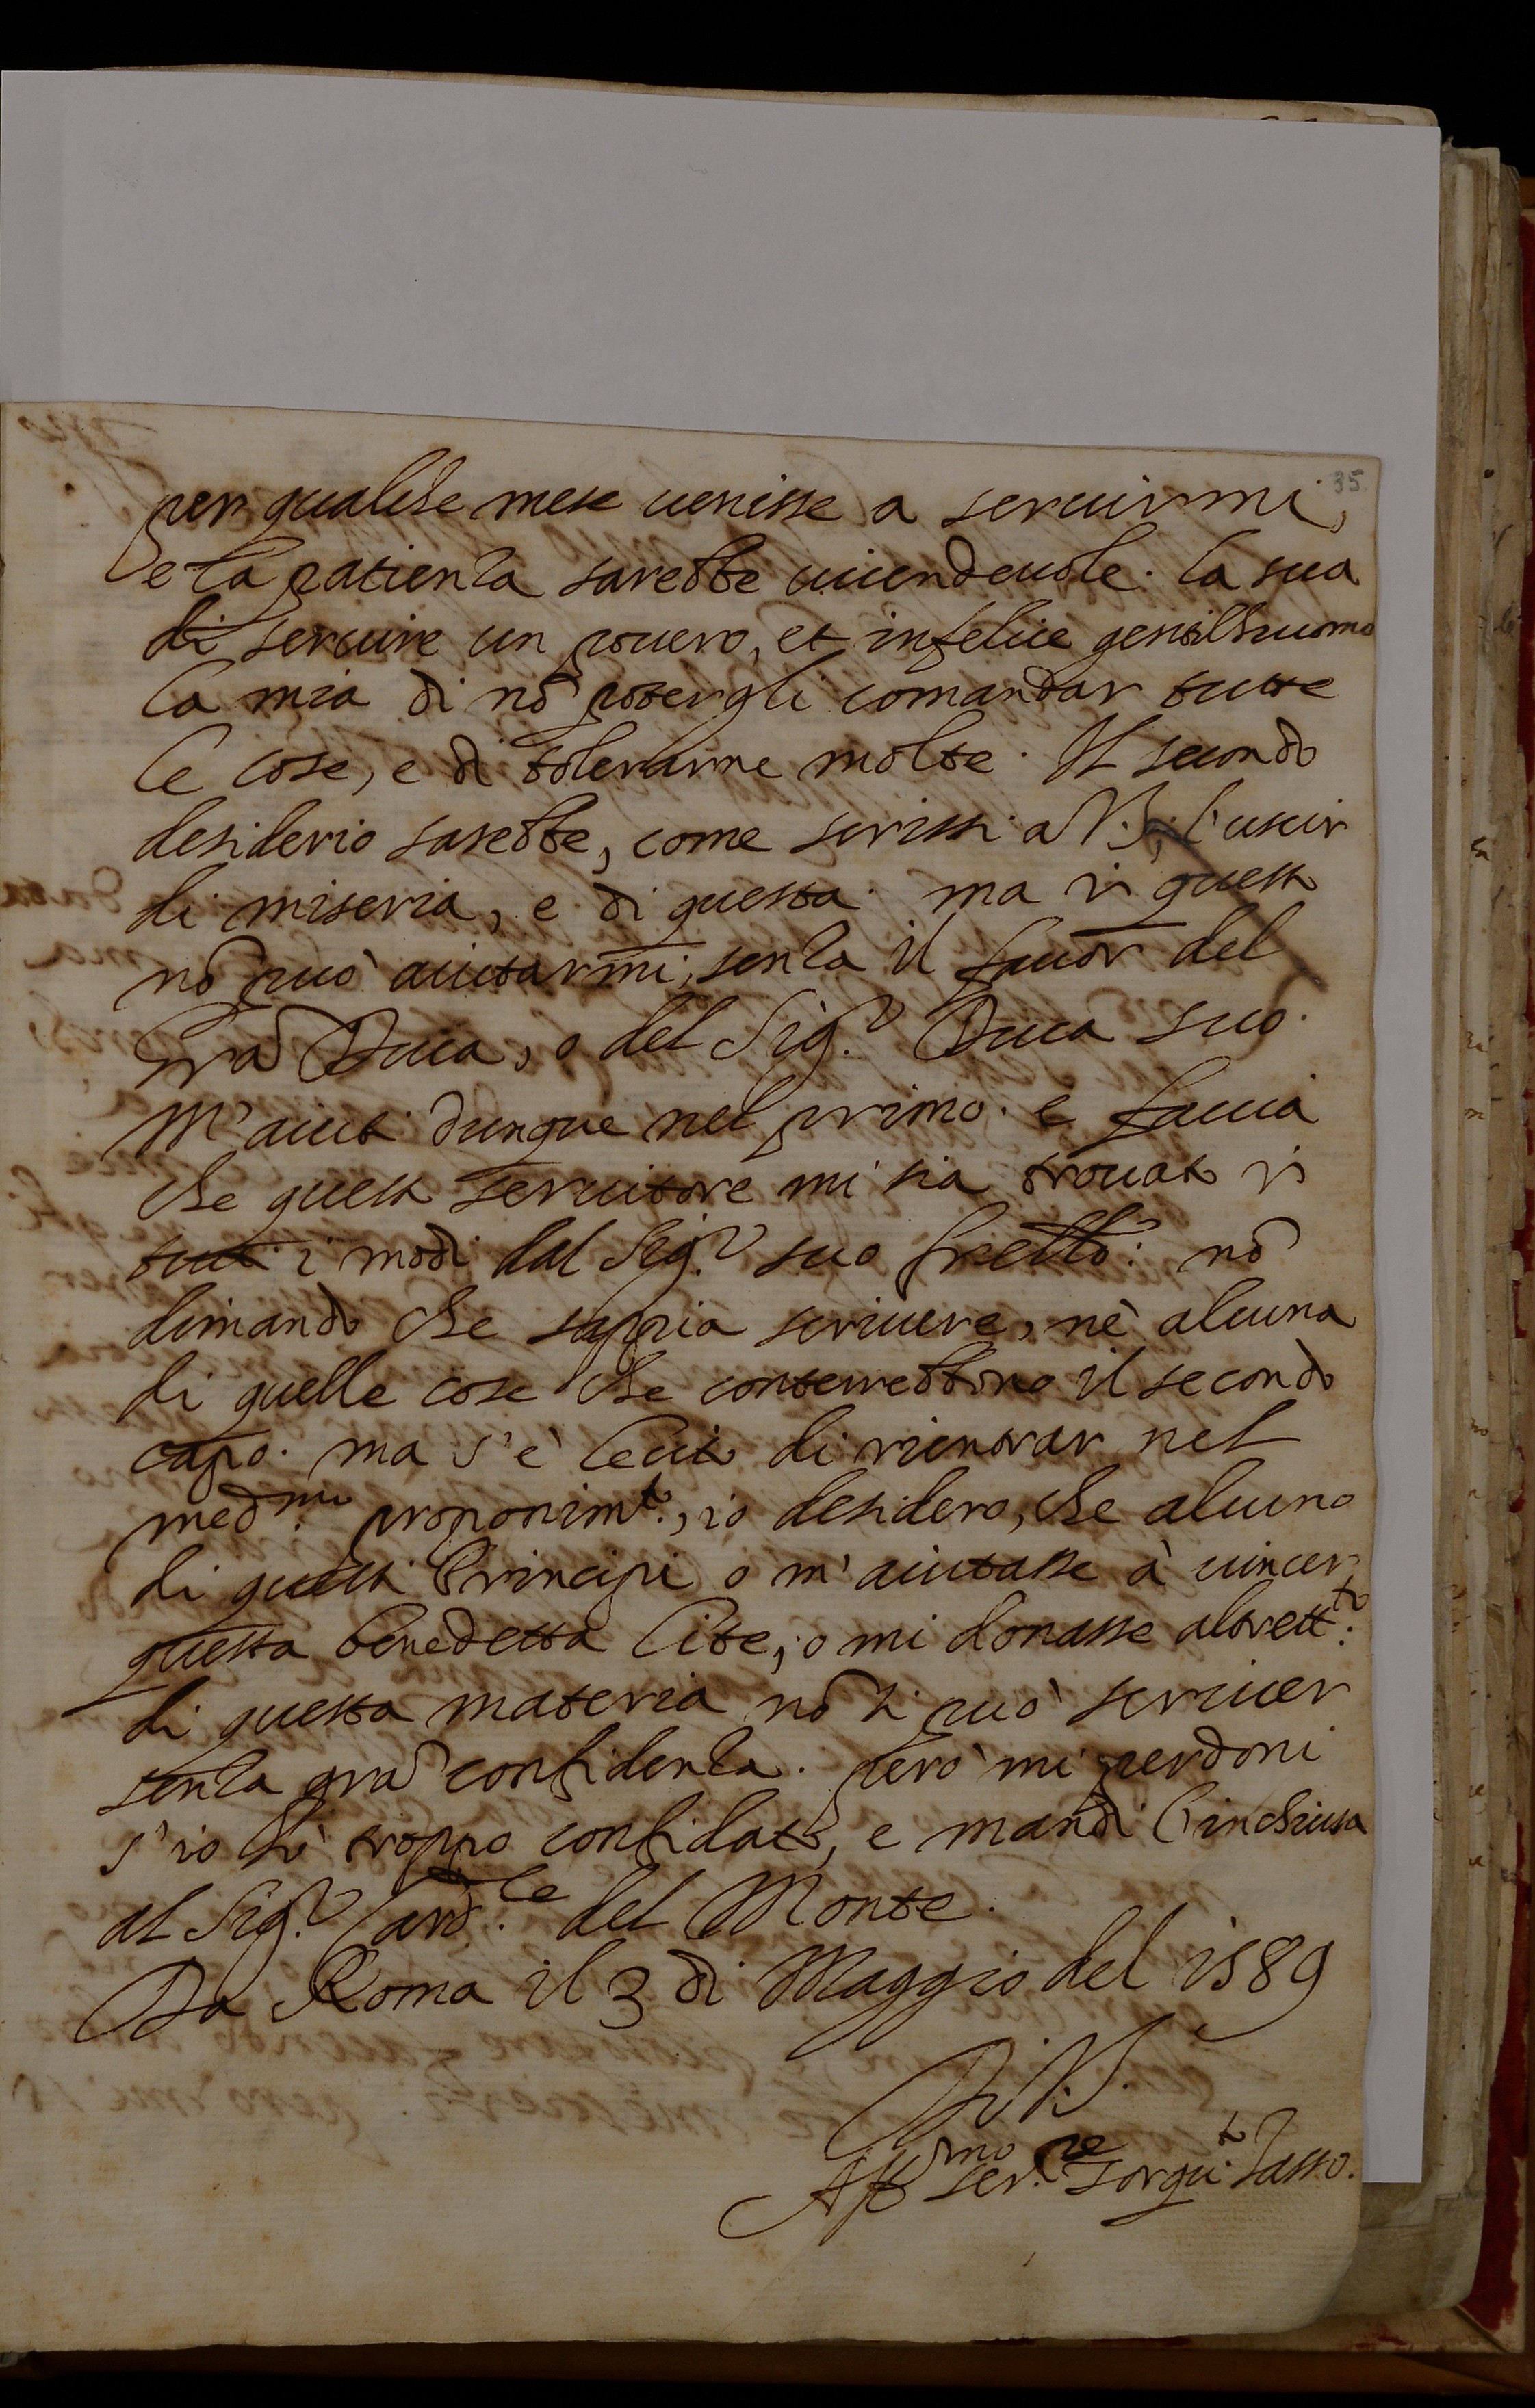 35.
per qualche mese uenisse a seruirmi,
e la patienza sarebbe uicendeuole. la sua
di seruire un pouero, et infelice gentilhuomo
la mia di nõ potergli comandar tutte
le cose, e di tolerarne molte. Il secondo
desiderio sarebbe, come scrissi a V.S., l'uscir
di miseria, e di questa. ma ĩ questo
nõ può aiutarmi, senza il fauor del
Grã Duca, o del Sig.r Duca suo.
M'aiuti dunque nel primo. e faccia
che questo seruitore mi sia trouato ĩ
tutti i modi dal Sig.r suo frẽllo: nõ
dimando che sappia scriuere, nè alcuna
di quelle cose che conterrebbono il secondo
capo. ma s'è lecito di rientrar nel
med.mo proponim.to, io desidero, che alcuno
di questi Principi o m'aiutasse à uincer
questa benedetta lite, o mi donasse altrett.to
di questa materia nõ si può scriuer
senza grã confidenza. però mi perdoni
s'io hò troppo confidato, e mandi l'inchiusa
al Sig.r Card.le del Monte.
Da Roma il 3 di Maggio del 1589
Di V.S.
Aff.mo ser.re Torqu.to Tasso.